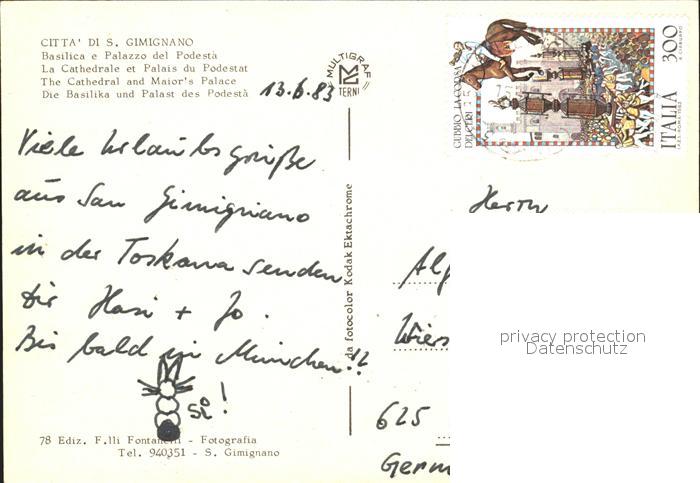 CITTA' DI S. GIMIGNANO
Basilica e Palazzo del Podestà
La Cathedrale et Palais du Podestat
The Cathedral and Maior's Palace
Die Basilika und Palast des Podestà
13.6.83
MULTIGRAF
TERNI
Viele Urlaubsgrüße
aus San Gimignano
in der Toskana senden
Dir Hasi + Jo.
Bis bald in München!!
Sì!
78 Ediz. F.lli Fontanelli - Fotografia
Tel. 940351 - S. Gimignano
da fotocolor Kodak Ektachrome
GUBBIO LA CORSA
DEI CERI
ITALIA 300
Herrn
Alf
Wiers
625
Germ
privacy protection
Datenschutz